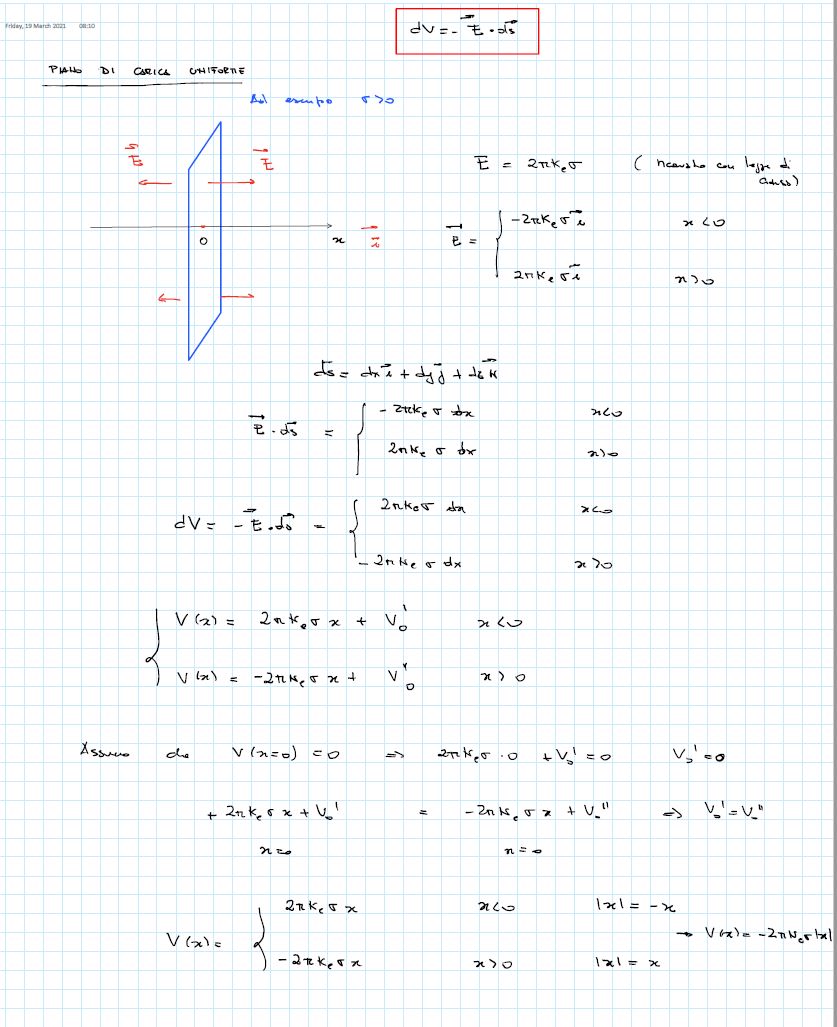 Friday, 19 March 2021 08:10
dV = - E⃗ · ds⃗
PIANO DI CARICA UNIFORME
Ad esempio σ>0
E⃗ E⃗
E = 2πKₑσ ( ricavato con legge di Gauss)
0 x i⃗
E⃗ = { -2πKₑσ i⃗ x<0
2πKₑσ i⃗ x>0
ds⃗ = dx i⃗ + dy j⃗ + dz k⃗
E⃗ · ds⃗ = { -2πKₑ σ dx x<0
2πKₑ σ dx x>0
dV = - E⃗ · ds⃗ = { 2πKₑσ dx x<0
-2πKₑ σ dx x>0
{ V(x) = 2πKₑσ x + V₀' x<0
V(x) = -2πKₑσ x + V₀'' x>0
Assumo che V(x=0) = 0 => 2πKₑσ · 0 + V₀' = 0 V₀' = 0
+ 2πKₑσ x + V₀' = -2πKₑσ x + V₀'' => V₀' = V₀''
x=0 x=0
V(x) = { 2πKₑσ x x<0 |x| = -x
→ V(x) = -2πKₑσ|x|
-2πKₑσ x x>0 |x| = x